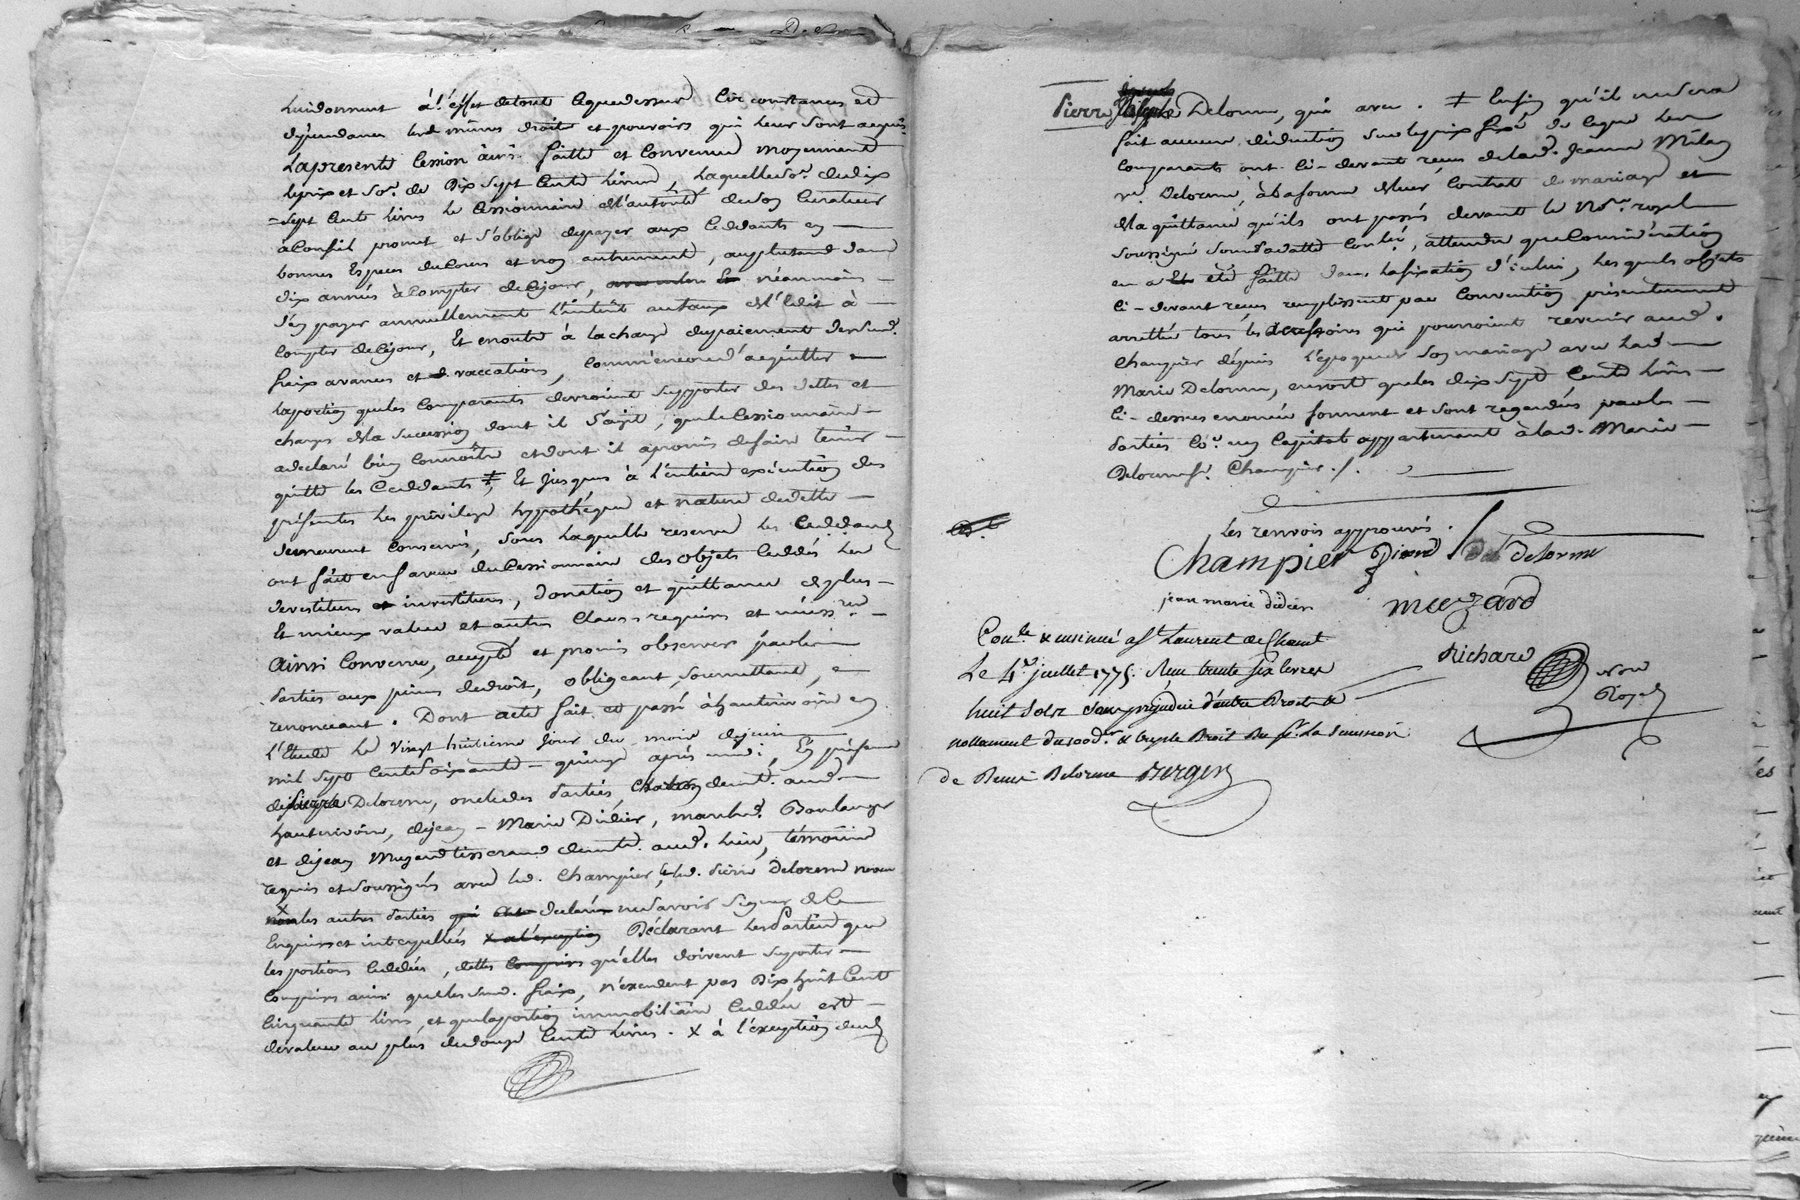 luidonnent à l'effet detout cequedessus circonstances et
dépendances les mêmes droits et pouvoirs qui leur sont acquis
La presente cession ainsi faitte et convenue moyennant
le prix et so.e de Dix sept Cents Livres, laquelle so.e de dix
=sept cents livres le cessionnaire de l'autorité de son curateur
à conseil promet et s'oblige de payer aux Ceddants en
bonnes Especes de cours et non autrement, au plus tard dans
dix années à compter de ce jour, néanmoins
d'en payer annuellement l'intérêt au taux de l'Edit à
compter de ce jour, Et en outre à la charge du paiement des sus.d
fraix avances et vaccations, comme encore d'acquitter
la portion que les comparants devroient supporter des dettes et
charges de la sucession dont il s'agit, que le Cessionnaire
a déclaré bien connoître et dont il a promis de faire tenir
quitte les Ceddants ‡, Et jusques à l'entière exécution des
présentes les privilege hypothéque et nature de dette
demeurent conservés, sous laquelle reserve les Ceddants
ont fait en faveur du Cessionnaire des objets Ceddés les
devestitures et investitures, donation et quittance de plus
Et mieux value et autres Clauses requises et nécess.res
Ainsi Convenu, accepté et promis observer par les
Parties aux peines de droit, obligeant, soumettant,
renonceant. Dont acte fait et passé à hauterivoire en
l'Etude Le vingt huitieme jour du mois de juin
mil sept Cents soixante-quinze après midi, En présence
de pierre Delorme, oncle des Parties, demt. aud.
hauterivoire, de jean-Marie Didier, march.d Boulanger
et de jean Muzard tisserand demts. aud. lieu, témoins
requis et soussignés avec led. Champier, led. Pierre Delorme neveu
non les autres Parties declaré ne savoir signer de ce
Enquises et interpellées x a l'exception Déclarant Les Parties que
les portions Ceddées, dettes comprises qu'elles doivent suporter
comprises ainsi que les sud. fraix, n'excedent pas Dix huit Cent
Cinquante livres, et que la portion immobiliaire Ceddée est
de valeur au plus de douze Cents Livres. x à l'exception dud.
Pierre Delorme, qui avec. ‡ Enfin qu'il ne sera
fait aucune déduction sur le prix fixé de ce que les
Comparants ont ci-devant reçu de lad. Jeanne Milan
v.e Delorme, à la forme de leur Contrat de mariage et
de la quittance qu'ils ont passés devant le No.re royal
soussigné sous sa datte Conlé, attendu que Considération
en a été faitte dans la fixation d'icelui, Les quels objets
ci-devant reçus remplissent par Convention présentement
arrettée tous les accessoires qui pourroient revenir aud.
Champier dépuis l'époque de son mariage avec lad.
Marie Delorme, ensorte que les dix sept Cents livres
ci-dessus énoncées forment et sont regardées par les
Parties co.e un Capital appartenant à lad. Marie
Delorme fe. Champier./.
Les renvois approuvés.
Champier Pierre Delorme
jean marie didier meuzard
Richard
Con.lé & insinué a St. Laurent de Chamt
Le 4e juillet 1775. Reçu trente six livres
huit sols sans préjudice d'autre Droit &
notlament du 100d.r & triple Droit De la Sucession
de Remi Delorme Berger
No.re
Royal